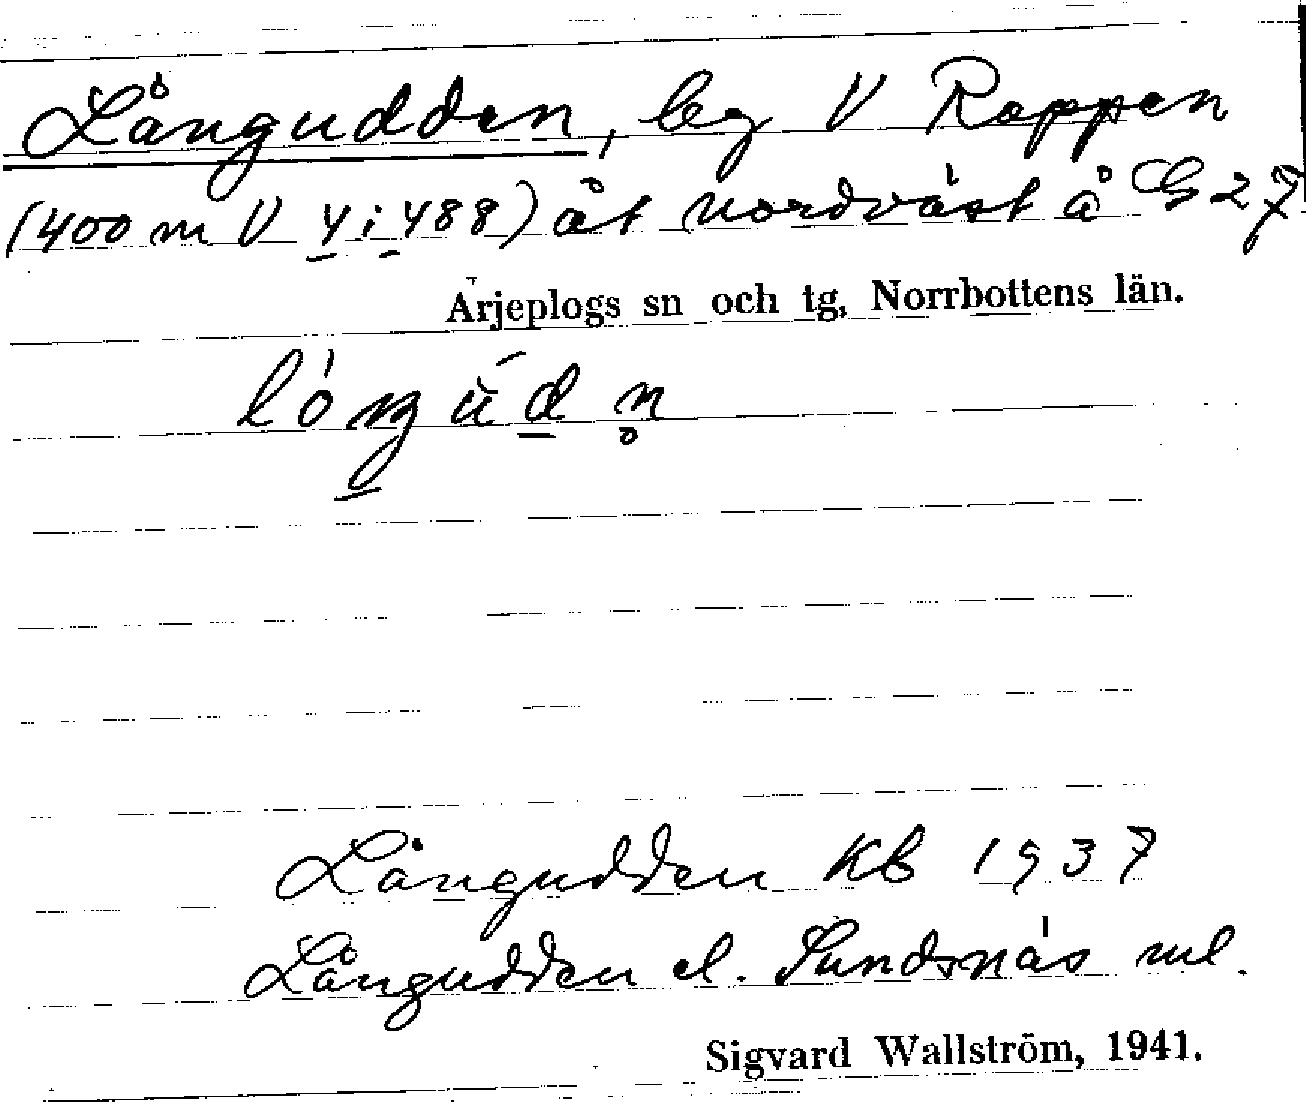 Långudden, beg V Rappen
(400 m V y i 488) åt nordväst å G 27
Arjeplogs sn och tg, Norrbottens län.
Långudden Kb 1937
Långudden el. Sundsnäs ml.
Sigvard Wallström, 1941.